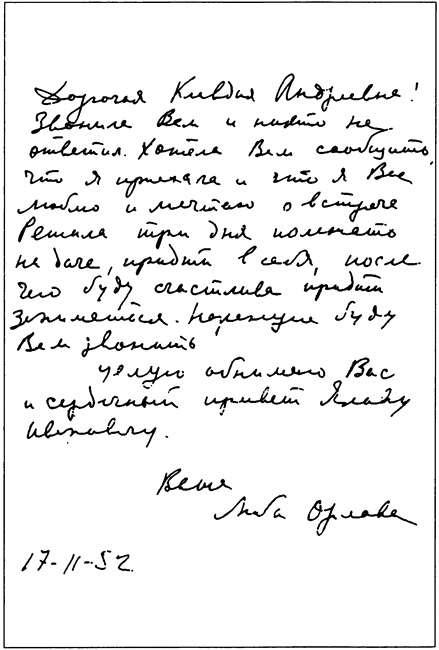 Дорогая Клавдия Андреевна!
Звонила Вам и никто не
ответил. Хотела Вам сообщить,
что я приехала и что я Вас
люблю и мечтаю о встрече
Решила три дня полежать
на даче, прийти в себя, после
чего буду счастлива прийти
заниматься. Накануне буду
Вам звонить
целую обнимаю Вас
и сердечный привет
Ивановичу.
Ваша
Люба Орлова
17-II-52